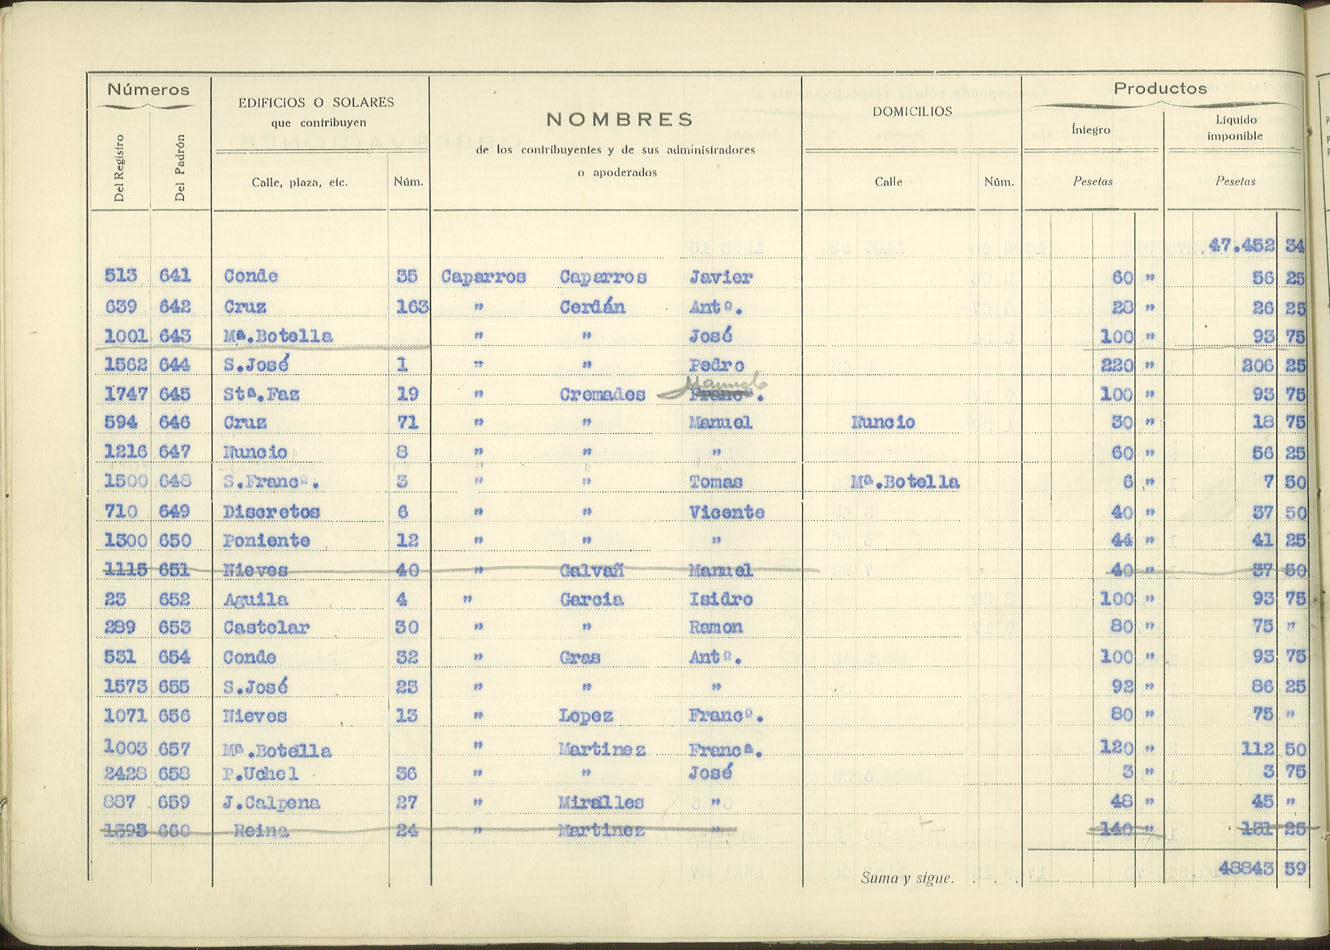 Números
EDIFICIOS O SOLARES
que contribuyen
NOMBRES
de los contribuyentes y de sus administradores
o apoderados
DOMICILIOS
Productos
Íntegro
Líquido
imponible
Del Registro
Del Padrón
Calle, plaza, etc. Núm. Calle Núm. Pesetas Pesetas
47.452 34
513 641 Conde 35 Caparros Caparros Javier 60 " 56 25
639 642 Cruz 163 " Cerdán Antº. 28 " 26 25
1001 643 Mª.Botella " " José 100 " 93 75
1562 644 S.José 1 " " Pedro 220 " 206 25
1747 645 Stª.Faz 19 " Cremades Francº. Manuel 100 " 93 75
594 646 Cruz 71 " " Manuel Nuncio 30 " 18 75
1216 647 Nuncio 8 " " " 60 " 56 25
1500 648 S.Francº. 3 " " Tomas Mª.Botella 6 " 7 50
710 649 Discretos 6 " " Vicente 40 " 37 50
1300 650 Poniente 12 " " " 44 " 41 25
1115 651 Nieves 40 " Galvañ Manuel 40 " 37 50
23 652 Aguila 4 " Garcia Isidro 100 " 93 75
289 653 Castelar 30 " " Ramon 80 " 75 "
531 654 Conde 32 " Gras Antº. 100 " 93 75
1573 655 S.José 23 " " " 92 " 86 25
1071 656 Nieves 13 " Lopez Francº. 80 " 75 "
1003 657 Mª.Botella " Martinez Francª. 120 " 112 50
2428 658 P.Uchel 36 " " José 3 " 3 75
887 659 J.Calpena 27 " Miralles " 48 " 45 "
1393 660 Reina 24 " Martinez " 140 " 131 25
Suma y sigue. . . . 48843 59